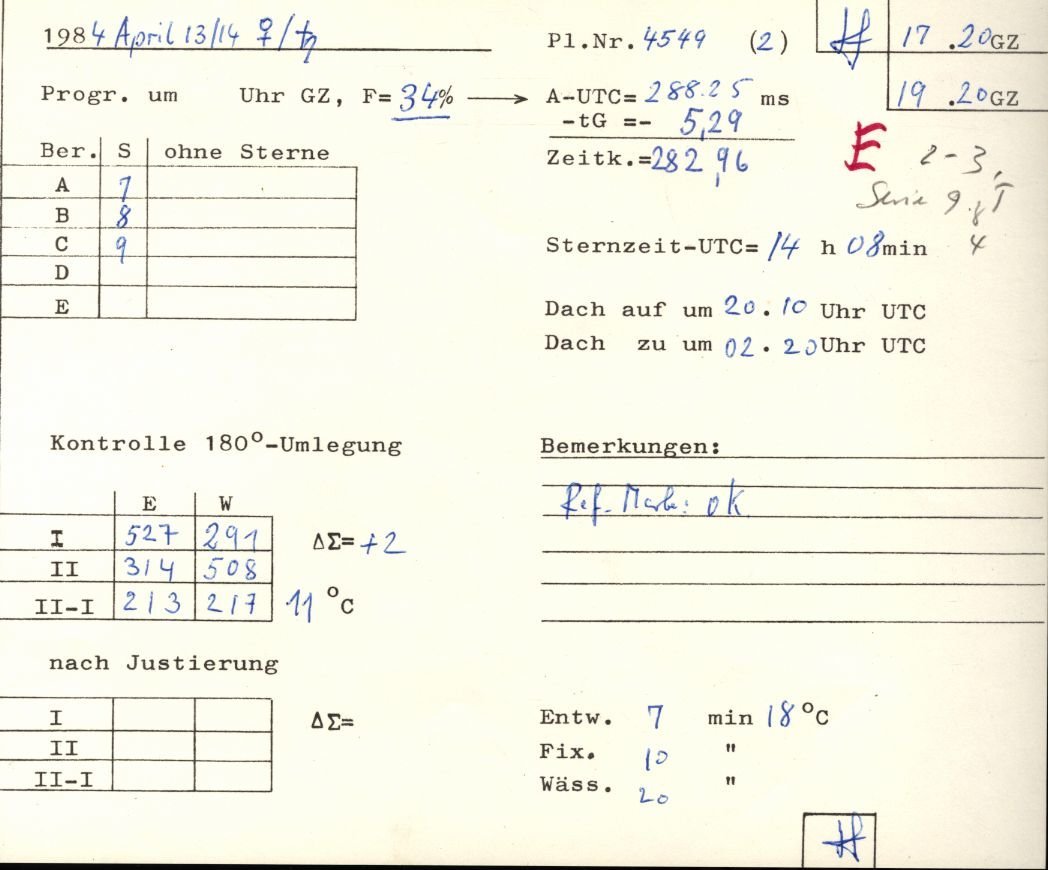 1984 April 13/14 ♀/♄
Pl.Nr. 4549 (2)
17 .20 GZ
Progr. um Uhr GZ, F= 34% → A-UTC= 288.25 ms
19 .20 GZ
-tG =- 5,29
Zeitk.=282,96
E 2-3,
Serie 9
4
Ber. S ohne Sterne
A 7
B 8
C 9
D
E
Sternzeit-UTC= 14 h 08min
Dach auf um 20.10 Uhr UTC
Dach zu um 02.20 Uhr UTC
Kontrolle 180°-Umlegung
E W
I 527 291 ΔΣ= +2
II 314 508
II-I 213 217 11 °C
Bemerkungen:
Ref. Marke: ok
nach Justierung
I ΔΣ=
II
II-I
Entw. 7 min 18 °C
Fix. 10 "
Wäss. 20 "